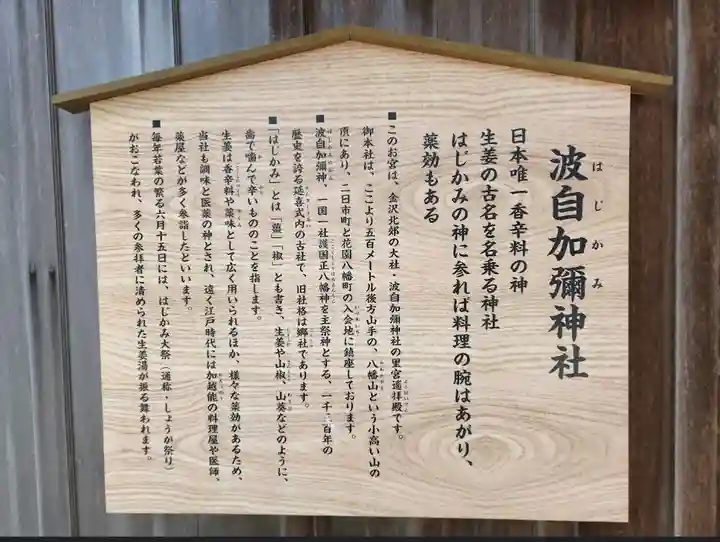 波自加彌神社
はじかみ
日本唯一香辛料の神
生姜の古名を名乗る神社
はじかみの神に参れば料理の腕はあがり、
薬効もある
■このお宮は、金沢北郊の大社・波自加彌神社の里宮遙拝殿です。
御本社は、ここより五百メートル後方山手の、八幡山という小高い山の
頂にあり、二日市町と花園八幡町の入会地に鎮座しております。
■波自加彌神、一国一社護国正八幡神を主祭神とする、一千三百年の
歴史を誇る延喜式内の古社で、旧社格は郷社であります。
■「はじかみ」とは「薑」「椒」とも書き、生姜や山椒、山葵などのように、
歯で噛んで辛いもののことを指します。
生姜は香辛料や薬味として広く用いられるほか、様々な薬効があるため、
当社も調味と医薬の神とされ、遠く江戸時代には加越能の料理屋や医師、
薬屋などが多く参詣したといいます。
■毎年若葉の繁る六月十五日には、はじかみ大祭（通称・しょうが祭り）
がおこなわれ、多くの参拝者に清められた生姜湯が振る舞われます。